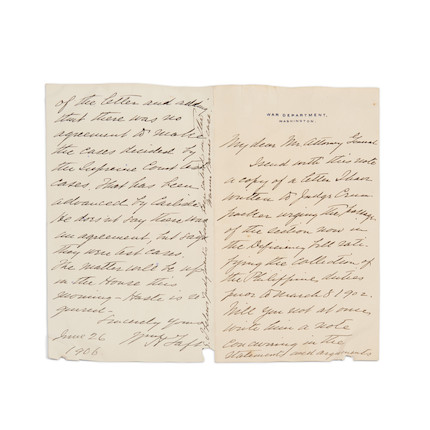 WAR DEPARTMENT,
WASHINGTON.
My dear Mr Attorney General
I send with this note
a copy of a letter I have
written to Judge Crum
packer urging the passage
of the section now in
the Deficiency bill rati
fying the collection of
the Philippine duties
prior to March 8 1902.
Will you not at once
write him a note
concurring in the
statements and arguments
of the letter and adding
that there was no
agreement to make
the cases decided by
the Supreme Court test
cases. That has been
advanced by
He does not say there was
an agreement, but says
they were test cases.
The matter will be up
in the House this
morning - Haste is re
quired.
Sincerely yours
Wm H Taft
June 26
1906